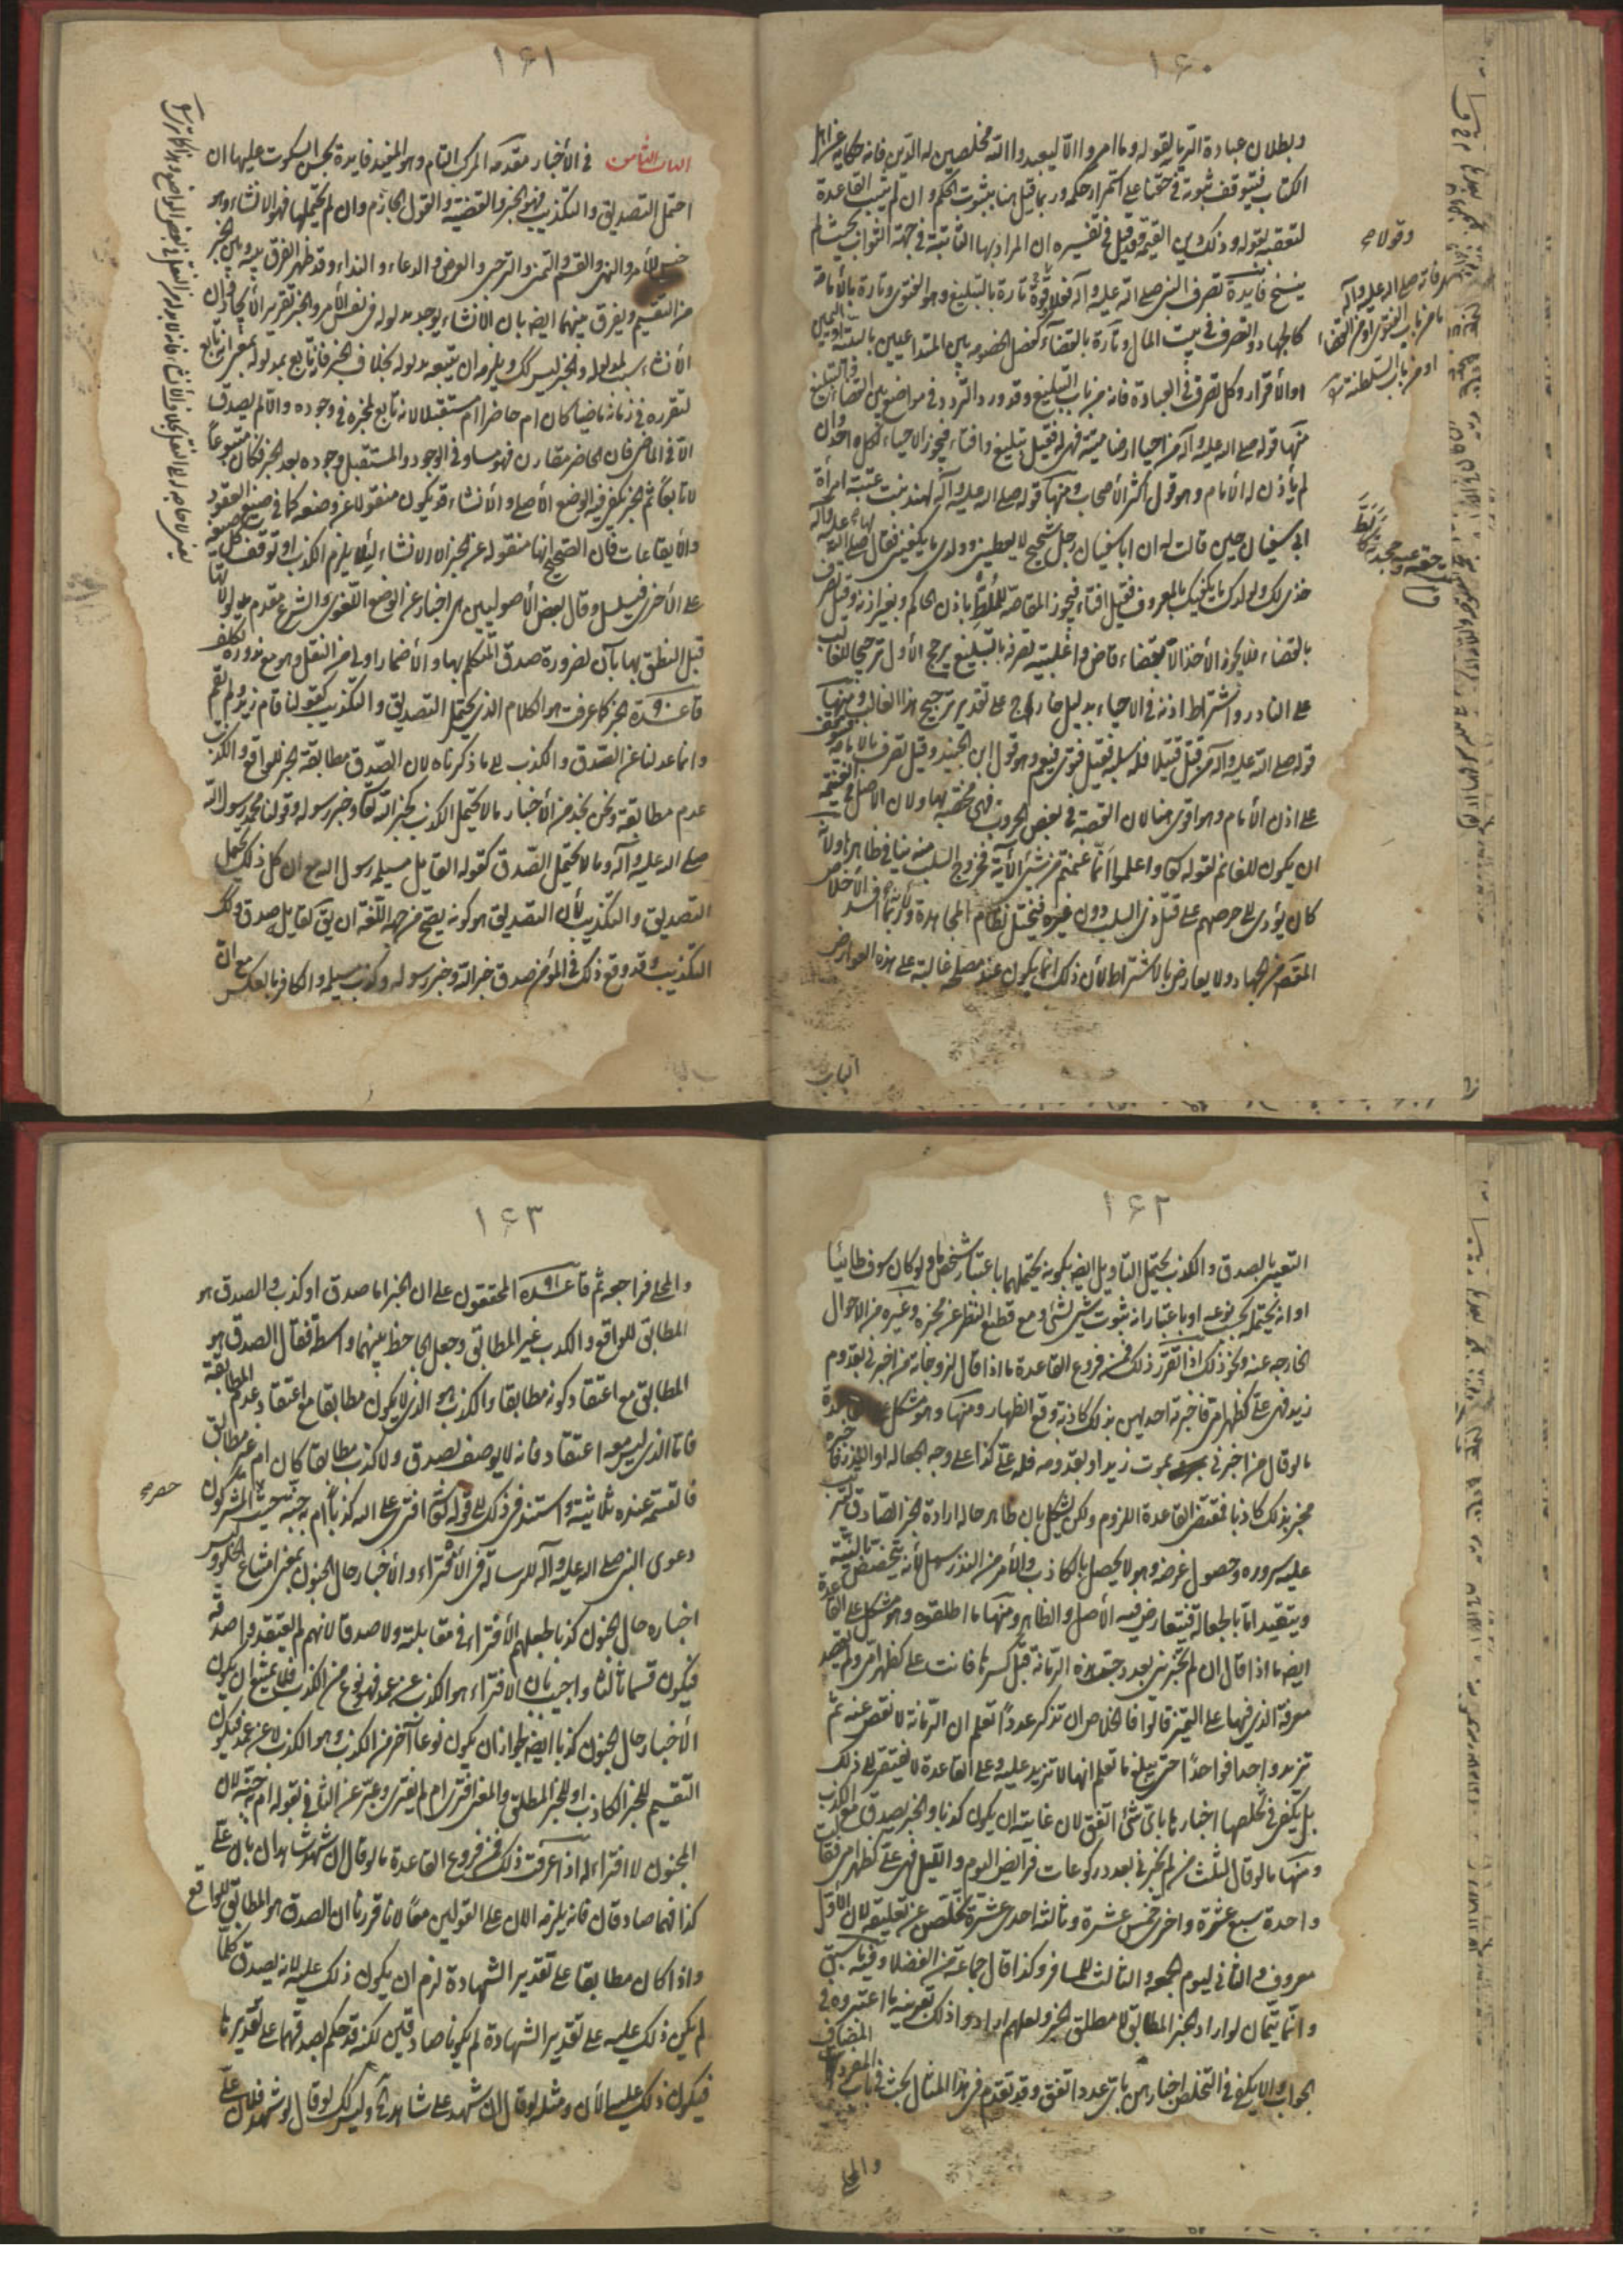 ١٦٠
وبطلان عبادة الريا بقوله وما امروا الا ليعبدوا الله مخلصين له الدين فانه حكاية عن اهل
الكتاب فيتوقف ثبوته في حقنا على استمرار حكمه وربما قيل هنا بثبوت الحكم وان لم تثبت القاعدة
لتعقبه بقوله وذلك دين القيمة فقد قيل في تفسيره ان المراد بها الثابتة في جهة الثواب بحيث لم
ينسخ فايدة تصرف النبي صلى الله عليه وآله تارة بالتبليغ وهو الفتوى وتارة بالامامة
كالجهاد والتصرف في بيت المال وتارة بالقضاء كفصل الخصومة بين المتداعيين بالبينة او اليمين
او الاقرار وكل تصرف في العبادة فانه من باب التبليغ وقد ورد التردد في مواضع بين القضاء والتبليغ
منها قوله صلى الله عليه وآله من احيا ارضا ميتة فهي له فقيل تبليغ وافتاء فيجوز الاحياء لكل احد وان
لم يأذن له الامام وهو قول اكثر الأصحاب ومنها قوله صلى الله عليه وآله لهند بنت عتبة امرأة
ابي سفيان حين قالت له ان ابا سفيان رجل شحيح لا يعطيني وولدي ما يكفيني فقال لها صلى الله عليه وآله
خذي لك ولولدك ما يكفيك بالمعروف فقيل افتاء فيجوز المقاصة للمسلط باذن الحاكم وبغير اذنه وقيل تصرف
بالقضاء فلا يجوز الأخذ الا بقضاء قاض واغلبية تصرفه بالتبليغ يرجح الأول ترجيحا للغالب
على النادر واشتراط اذنه في الاحياء بدليل خارج على تقدير ترجيح هذا الغالب ومنها
قوله صلى الله عليه وآله من قتل قتيلا فله سلبه فقيل فتوى فيعم وهو قول ابن الجنيد وقيل تصرف بالامامة فيتوقف
على اذن الامام وهو اقوى هنا لان القصة في بعض الحروب فهي مختصة بها ولان الاصل في الغنيمة
ان يكون للغانم لقوله تعالى واعلموا انما غنمتم من شيء الآية فخروج السلب منه ينافي ظاهرها ولانه
كان يؤدي الى حرصهم على قتل ذي السلب دون غيره فيختل نظام المجاهدة ولربما افسد الاخلاص
المقصود من الجهاد ولا يعارض بالاشتراط لأن ذلك انما يكون عند مصلحة غالبة على هذه العوارض
الباب
١٦١
الباب الثامن في الأخبار مقدمة المركب التام وهو المفيد فايدة يحسن السكوت عليها ان
احتمل التصديق والتكذيب فهو الخبر والقضية والقول الجازم وان لم يحتملها فهو الانشاء وهو
جنس للأمر والنهي والقسم والتمني والترجي والعرض والدعاء والنداء وقد ظهر الفرق بينه وبين الخبر
من التقسيم ويفرق بينهما ايضا بان الانشاء يوجد مدلوله في نفس الأمر والخبر تقرير الايجاد وان
الانشاء سبب لمدلوله والخبر ليس كك ويلزمه ان يتبعه مدلوله بخلاف الخبر فانه تابع لمدلوله بمعنى انه تابع
لتقرره في زمانه ماضيا كان ام حاضرا ام مستقبلا لا انه تابع لمخبره في وجوده والا لم يصدق
الا في الماضي فان الحاضر مقارن فهو مساو في الوجود والمستقبل وجوده بعد الخبر فكان متبوعا
لا تابعا ثم الخبر يكفي فيه الوضع الأصلي والانشاء قد يكون منقولا عن وضعه كما في صيغ العقود
والايقاعات فان الصحيح انها منقولة عن الخبر الى الانشاء لئلا يلزم الكذب او توقف كل صيغة
على الأخرى فيتسلسل وقال بعض الأصوليين هي اخبار عن الوضع اللغوي والشرع مقدم مدلولاتها
قبل النطق بها بآن لضرورة صدق المتكلم بها والاضمار اولى من النقل وهو مع ندوره تكلف
قاعدة الخبر كما عرفت هو الكلام الذي يحتمل التصديق والتكذيب كقولنا قام زيد ولم يقم
وانما عدلنا عن الصدق والكذب الى ما ذكرناه لان الصدق مطابقة الخبر للواقع والكذب
عدم مطابقته ونحن نجد من الأخبار ما لا يحتمل الكذب كخبر الله تعالى وخبر رسوله وقولنا محمد رسول الله
صلى الله عليه وآله وما لا يحتمل الصدق كقول القايل مسيلمة رسول الله مع ان كل ذلك يحتمل
التصديق والتكذيب لأن التصديق هو كونه يصح من جهة اللغة ان يق لقايله صدق وكك
التكذيب وقد وقع ذلك في المؤمن صدق خبر الله وخبر رسوله وكذب مسيلمة والكافر بالعكس مع ان
١٦٢
التعبير بالصدق والكذب يحتمل التأويل ايضا بكونه يحتملهما باعتبار شخص ما ولو كان سوفسطائيا
او انه يحتمله بحسب نوعه او باعتبار انه ثبوت شيء لشيء مع قطع النظر عن مخبره وغيره من الاحوال
الخارجة عنه ونحو ذلك اذا تقرر ذلك فمن فروع القاعدة ما اذا قال لزوجاته من اخبرني بقدوم
زيد فهي علي كظهر امي فاخبرته احديهن بذلك كاذبة وقع الظهار ومنها وهو مشكل على القاعدة
ما لو قال من اخبرني بموت زيد او بقدومه فله علي كذا على وجه الجعالة او النذر فاخبره
مخبر بذلك كاذبا فمقتضى القاعدة اللزوم ولكن يشكل بان ظاهر حاله ارادة الخبر الصادق لترتب
عليه سروره وحصول غرضه وهو لا يحصل بالكاذب والأمر من النذر سهل لأنه يتخصص بالنية
ويتقيد اما بالجعالة فيتعارض فيه الأصل والظاهر ومنها ما اطلقوه وهو مشكل على القاعدة
ايضا ما اذا قال ان لم تخبريني بعدد حب هذه الرمانة قبل كسرها فانت علي كظهر امي ولم يقصد
معرفة الذي فيها على التمييز قالوا فالخلاص ان تذكر عددا تعلم ان الرمانة لا تنقص عنه ثم
تزيد واحدا فواحدا حتى يبلغ ما تعلم انها لا تزيد عليه وعلى القاعدة لا يفتقر الى ذلك
بل يكفي في تخلصها اخبارها باي شيء اتفق لان غايته ان يكون كذبا والخبر يصدق مع الكذب
ومنها ما لو قال لثلث من لم تخبرني بعدد ركوعات فرايض اليوم والليل فهي علي كظهر امي فقالت
واحدة سبع عشرة واخرى خمس عشرة وثالثة احدى عشرة تخلص عن تعليقه لان الأول
معروف والثاني ليوم الجمعة والثالث للمسافر وكذا قال جماعة من الفضلاء وفيه ما سبق
وانما يتمان لو اراد الخبر المطابق لا مطلق الخبر ولعلهم ارادوا ذلك بقرينة ما اعتبروه في
الجواب والا يكفي في التخلص اخبارهن باي عدد اتفق وقد تقدم في هذا المثال بحث في باب المفرد المضاف
والمحلى
١٦٣
والمحلى فراجعه ثم قاعدة المحققون على ان الخبر اما صدق او كذب والصدق هو
المطابق للواقع والكذب غير المطابق وجعل الجاحظ بينهما واسطة فقال الصدق هو
المطابق مع اعتقاد كونه مطابقا والكذب هو الذي لا يكون مطابقا مع اعتقاد عدم المطابقة
فاما الذي ليس معه اعتقاد فانه لا يوصف بصدق ولا كذب مطابقا كان ام غير مطابق
فالقسمة عنده ثلاثية واستند في ذلك الى قوله تعالى افترى على الله كذبا ام به جنة حيث حصر المشركون
دعوى النبي صلى الله عليه وآله للرسالة في الافتراء والأخبار حال الجنون بمعنى امتناع الخلو وليس
اخباره حال الجنون كذبا لجعلهم الافتراء في مقابلته ولا صدقا لانهم لم يعتقدوا صدقه
فيكون قسما ثالثا واجيب بان الافتراء هو الكذب عن عمد فهو نوع من الكذب فلا يمتنع ان يكون
الأخبار حال الجنون كذبا ايضا لجواز ان يكون نوعا آخر من الكذب وهو الكذب لا عن عمد فيكون
التقسيم للخبر الكاذب او للخبر المطلق والمعنى افترى ام لم يفتر وعبر عن الثاني بقوله ام به جنة لان
المجنون لا افتراء له اذا عرفت ذلك فمن فروع القاعدة ما لو قال ان شهد شاهدان بان علي
كذا فهما صادقان فانه يلزمه الآن على القولين معا لانا قررنا ان الصدق هو المطابق للواقع
واذا كان مطابقا على تقدير الشهادة لزم ان يكون ذلك عليه لانه يصدق كلما
لم يكن ذلك عليه على تقدير الشهادة لم يكونا صادقين لكنه قد حكم بصدقهما على تقديرها
فيكون ذلك عليه الأن ومثله لو قال ان شهد علي شاهد الخ وليس كك لو قال لو شهد فلان علي